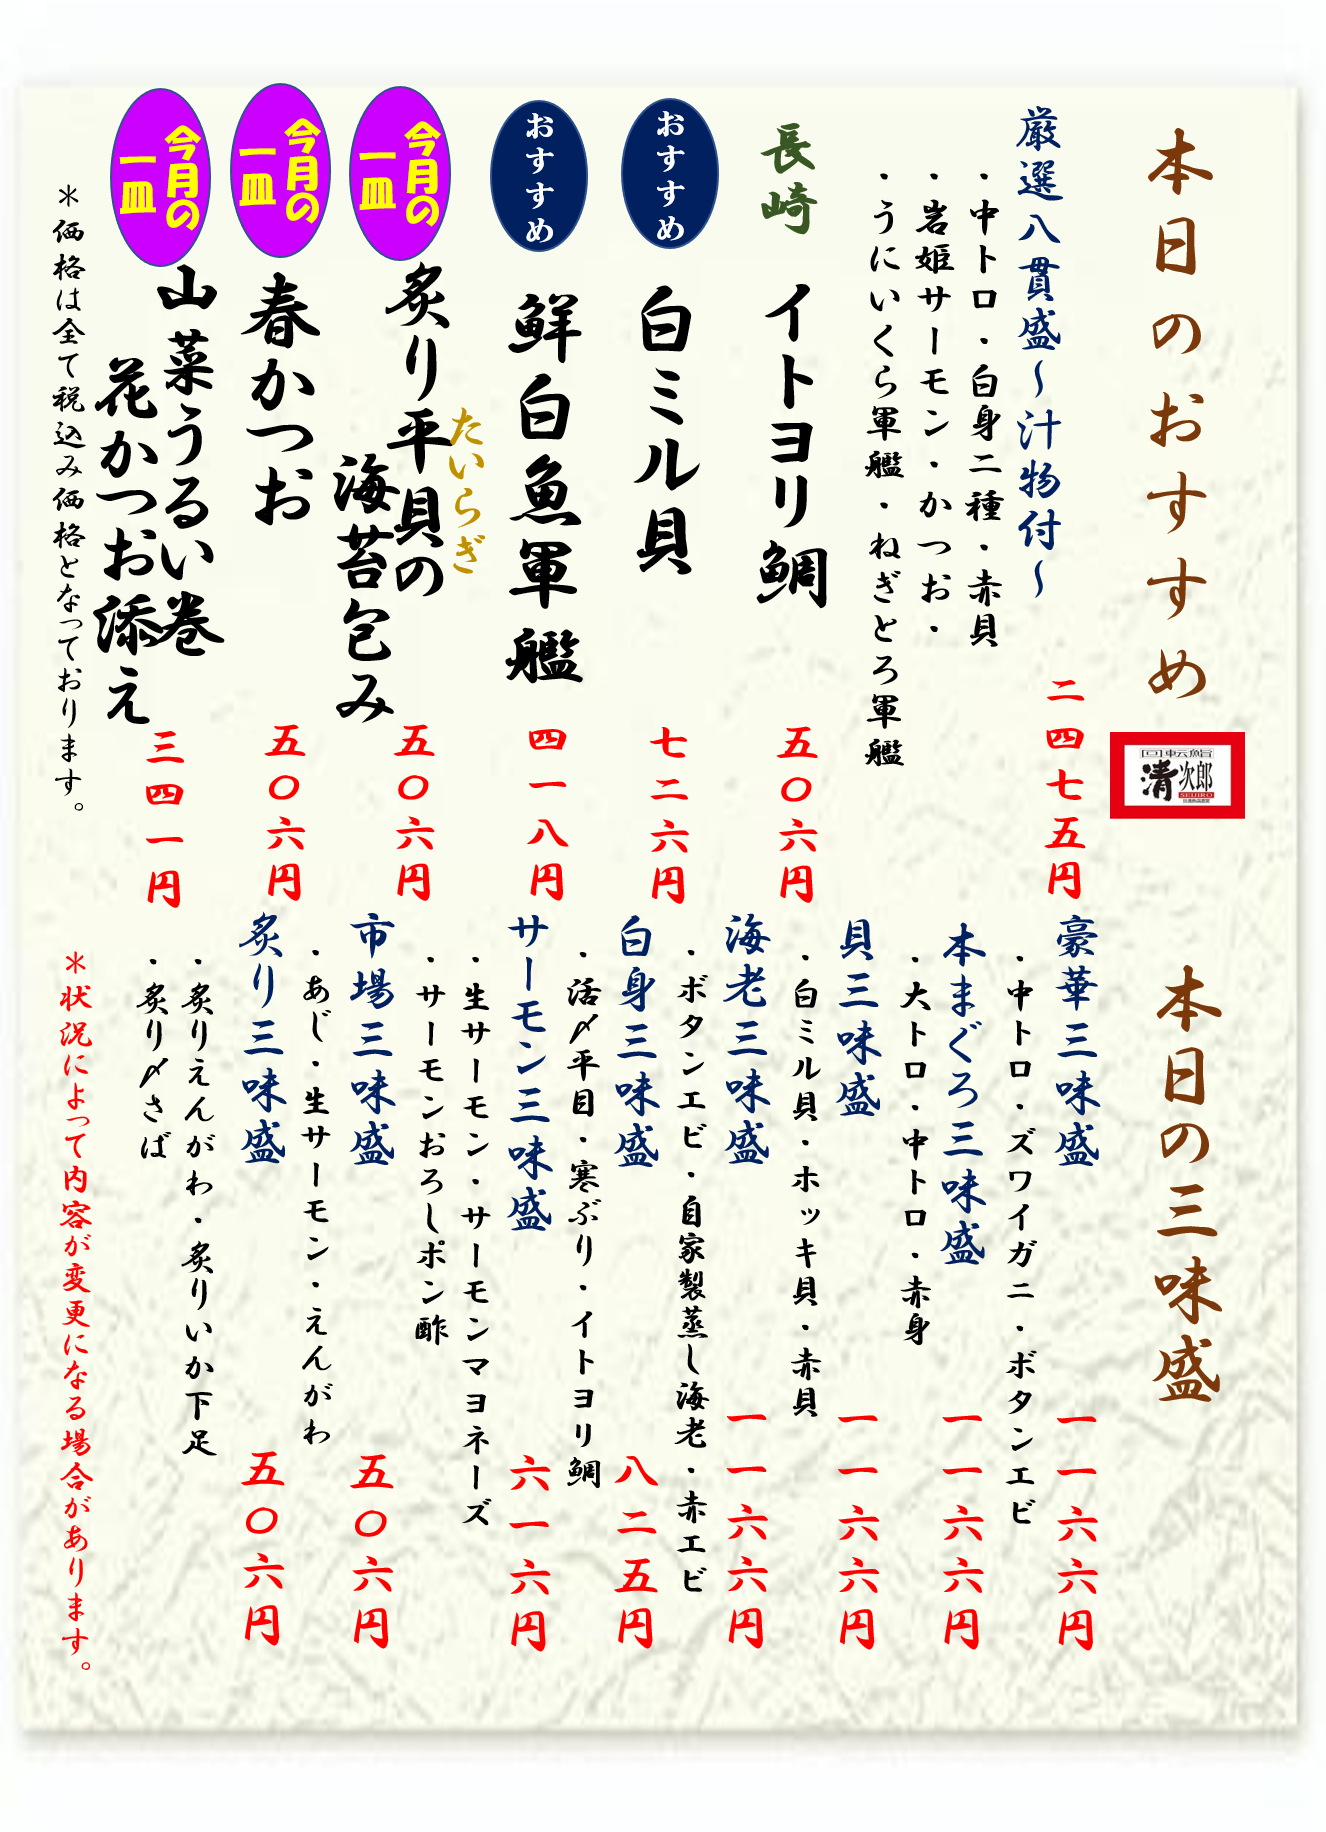 本日のおすすめ
回転鮨
清次郎
SEIJIRO
厳選八貫盛～汁物付～
二四七五円
・中トロ・白身二種・赤貝
・岩姫サーモン・かつお・
・うにいくら軍艦・ねぎとろ軍艦
長崎
イトヨリ鯛
五〇六円
おすすめ
白ミル貝
七二六円
おすすめ
鮮白魚軍艦
四一八円
今月の
一皿
たいらぎ
炙り平貝の
海苔包み
五〇六円
今月の
一皿
春かつお
五〇六円
今月の
一皿
山菜うるい巻
花かつお添え
三四一円
＊価格は全て税込み価格となっております。
本日の三味盛
豪華三味盛
一一六六円
・中トロ・ズワイガニ・ボタンエビ
本まぐろ三味盛
一一六六円
・大トロ・中トロ・赤身
貝三味盛
一一六六円
・白ミル貝・ホッキ貝・赤貝
海老三味盛
一一六六円
・ボタンエビ・自家製蒸し海老・赤エビ
白身三味盛
八二五円
・活〆平目・寒ぶり・イトヨリ鯛
サーモン三味盛
六一六円
・生サーモン・サーモンマヨネーズ
・サーモンおろしポン酢
市場三味盛
五〇六円
・あじ・生サーモン・えんがわ
炙り三味盛
五〇六円
・炙りえんがわ・炙りいか下足
・炙り〆さば
＊状況によって内容が変更になる場合があります。